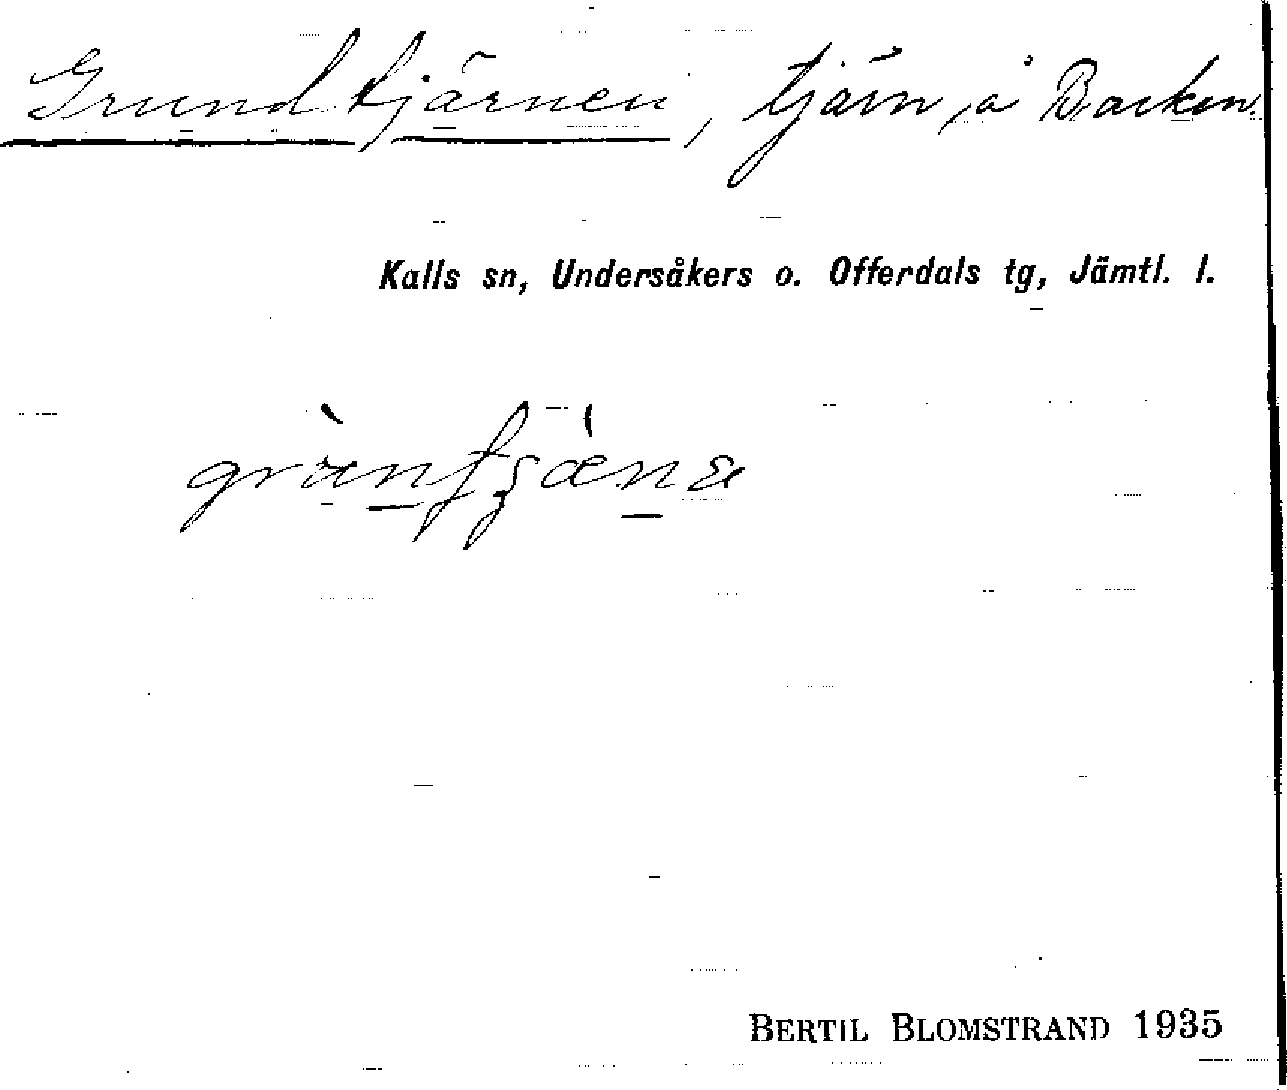 Grundtjärnen, tjärn å Backen.
Kalls sn, Undersåkers o. Offerdals tg, Jämtl. l.
BERTIL BLOMSTRAND 1935